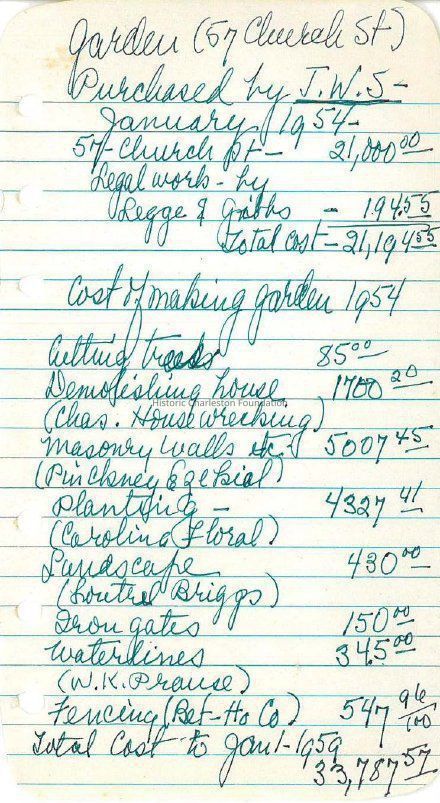 Garden (57 Church St)
Purchased by J.W.S-
January 1954-
57-Church St- 21,000 00
Legal work - by
Legge & Gibbs - 194.55
Total cost - 21,194 55
Cost of making garden 1954
Cutting trees 85 00
Demolishing house 1700 20
Historic Charleston Foundation
(Chas. House wrecking)
Masonry walls etc. 5007 45
(Pinckney Ezekial)
Planting - 4327 41
(Carolina Floral)
Landscape 430 00
(Loutrel Briggs)
Iron gates 150 00
Waterlines 345 00
(W.K. Prause)
Fencing (Bet-Ho Co) 547 96/100
Total Cost to Jan 1-1959
33,787 57